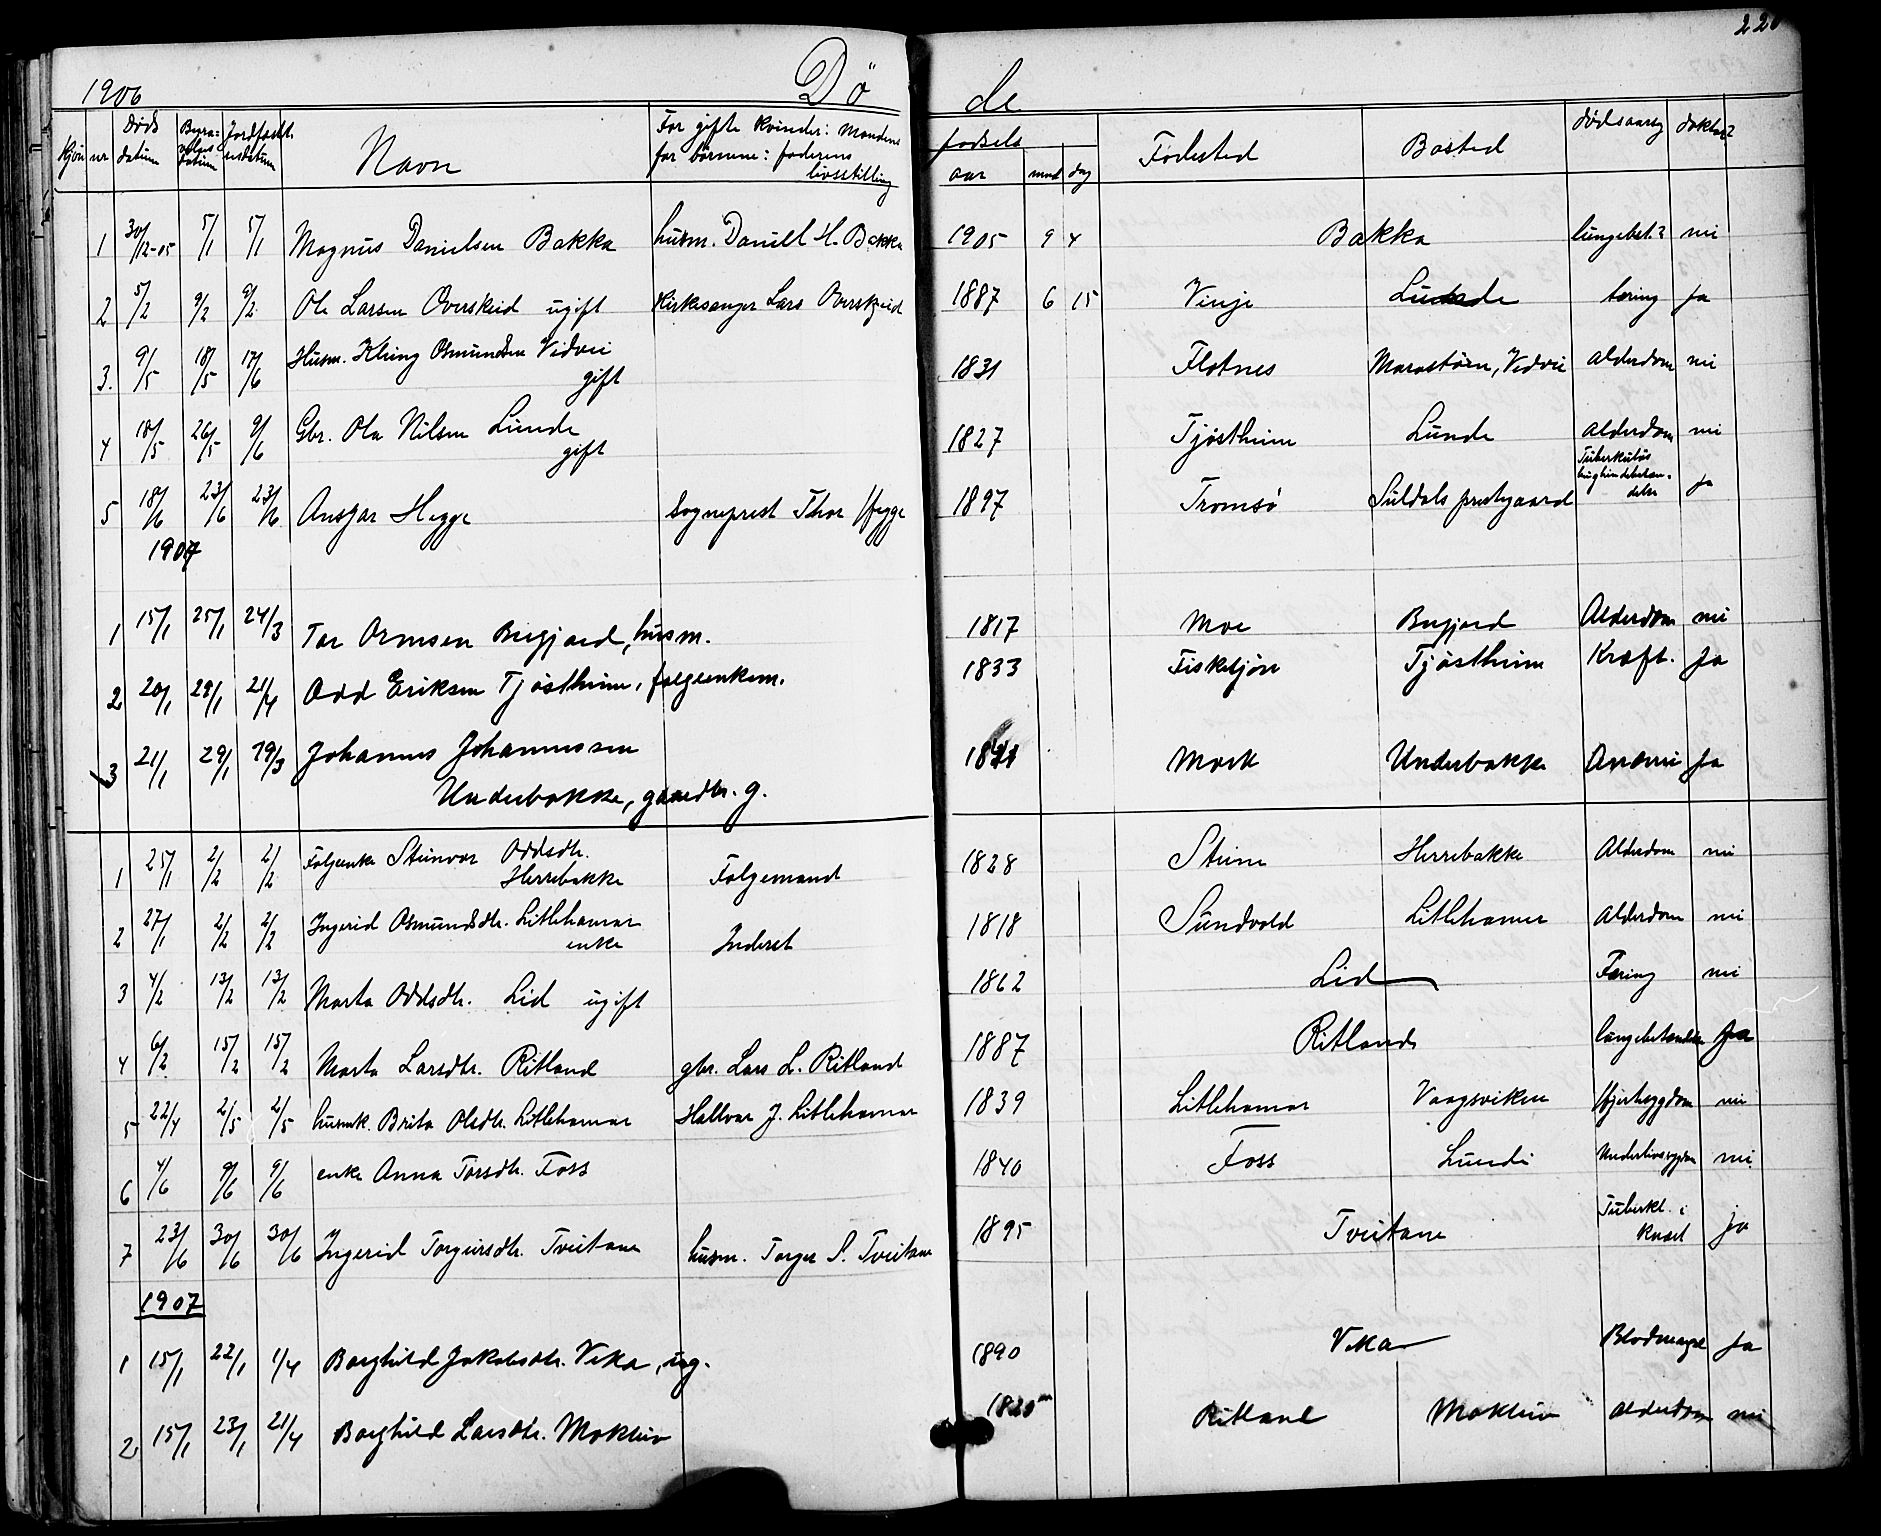 220
1906 Døde
Kjøn nr Døds datum Begravelses datum Jordfæstelsesdatum Navn For gifte kvinder: Mandens for børnene: faderens livsstilling fødsels aar mnd dag Fødested Bosted dødsaarsg doktor?
1 30/12-05 5/1 5/1 Magnus Danielsen Bakka husm. Daniel H. Bakka 1905 9 4 Bakka lungebet.? nei
2 5/2 9/2 9/2 Ole Larsen Overskeid ugift Kirkesanger Lars Overskeid 1887 6 15 Vinje Lunde tæring ja
3. 9/5 18/5 17/6 Husm. Kling Osmundsen Vidvei gift 1831 Flotnes Marastøen, Vidvei Alderdom nei
4 18/5 26/5 9/6 Gbr. Ola Nilsen Lunde gift 1827 Tjøstheim Lunde Alderdom nei
5 18/6 23/6 23/6 Ansgar Hegge Sogneprest Thor Hegge 1897 Tromsø Suldals prestegaard Tuberkuløs bughindebetændelse ja
1907
1 15/1 25/1 24/3 Tor Ormsen Bugjord, husm. 1817 Moe Bugjord Alderdom nei
2 20/1 29/1 21/4 Odd Eriksen Tjøstheim, følgeenkem. 1833 Fisketjøn Tjøstheim Kræft. Ja
3 21/1 29/1 19/3 Johannes Johannessen Underbakke, gaardbr. g. Mork Underbakke Anæmi Ja
1 25/1 2/2 2/2 Følgeenke Steinvor Oddsdtr. Herrebakke Følgemand 1828 Steine Herrebakke Alderdom nei
2 27/1 2/2 2/2 Ingerid Osmundsdtr. Litlehamar enke Inderst 1818 Sundvold Litlehamar Alderdom nei
3 4/2 13/2 13/2 Marta Oddsdtr. Lid ugift 1862 Lid Tæring nei
4 6/2 15/2 15/2 Marta Larsdtr. Ritland gbr. Lars L. Ritland 1887 Ritland lungebetændelse Ja
5 22/4 2/5 2/5 husmk. Brita Olsdtr. Litlehamar Hallvar J. Litlehamar 1839 Litlehamar Vaagsviken Hjertesygdom nei
6 4/6 9/6 9/6 enke Anna Torsdtr. Foss 1840 Foss Lunde Underlivssygdom nei
7 23/6 30/6 30/6 Ingerid Torgeirsdtr. Tveitane husm. Torger S. Tveitane 1895 Tveitane Tuberkl. i knæet ja
1907
1 15/1 22/1 1/4 Borghild Jakobsdtr. Vika, ug. 1890 Vika Blodmangel Ja
2 15/1 23/1 21/4 Borghild Larsdtr. Mokleiv 1820 Ritland Mokleiv Alderdom nei